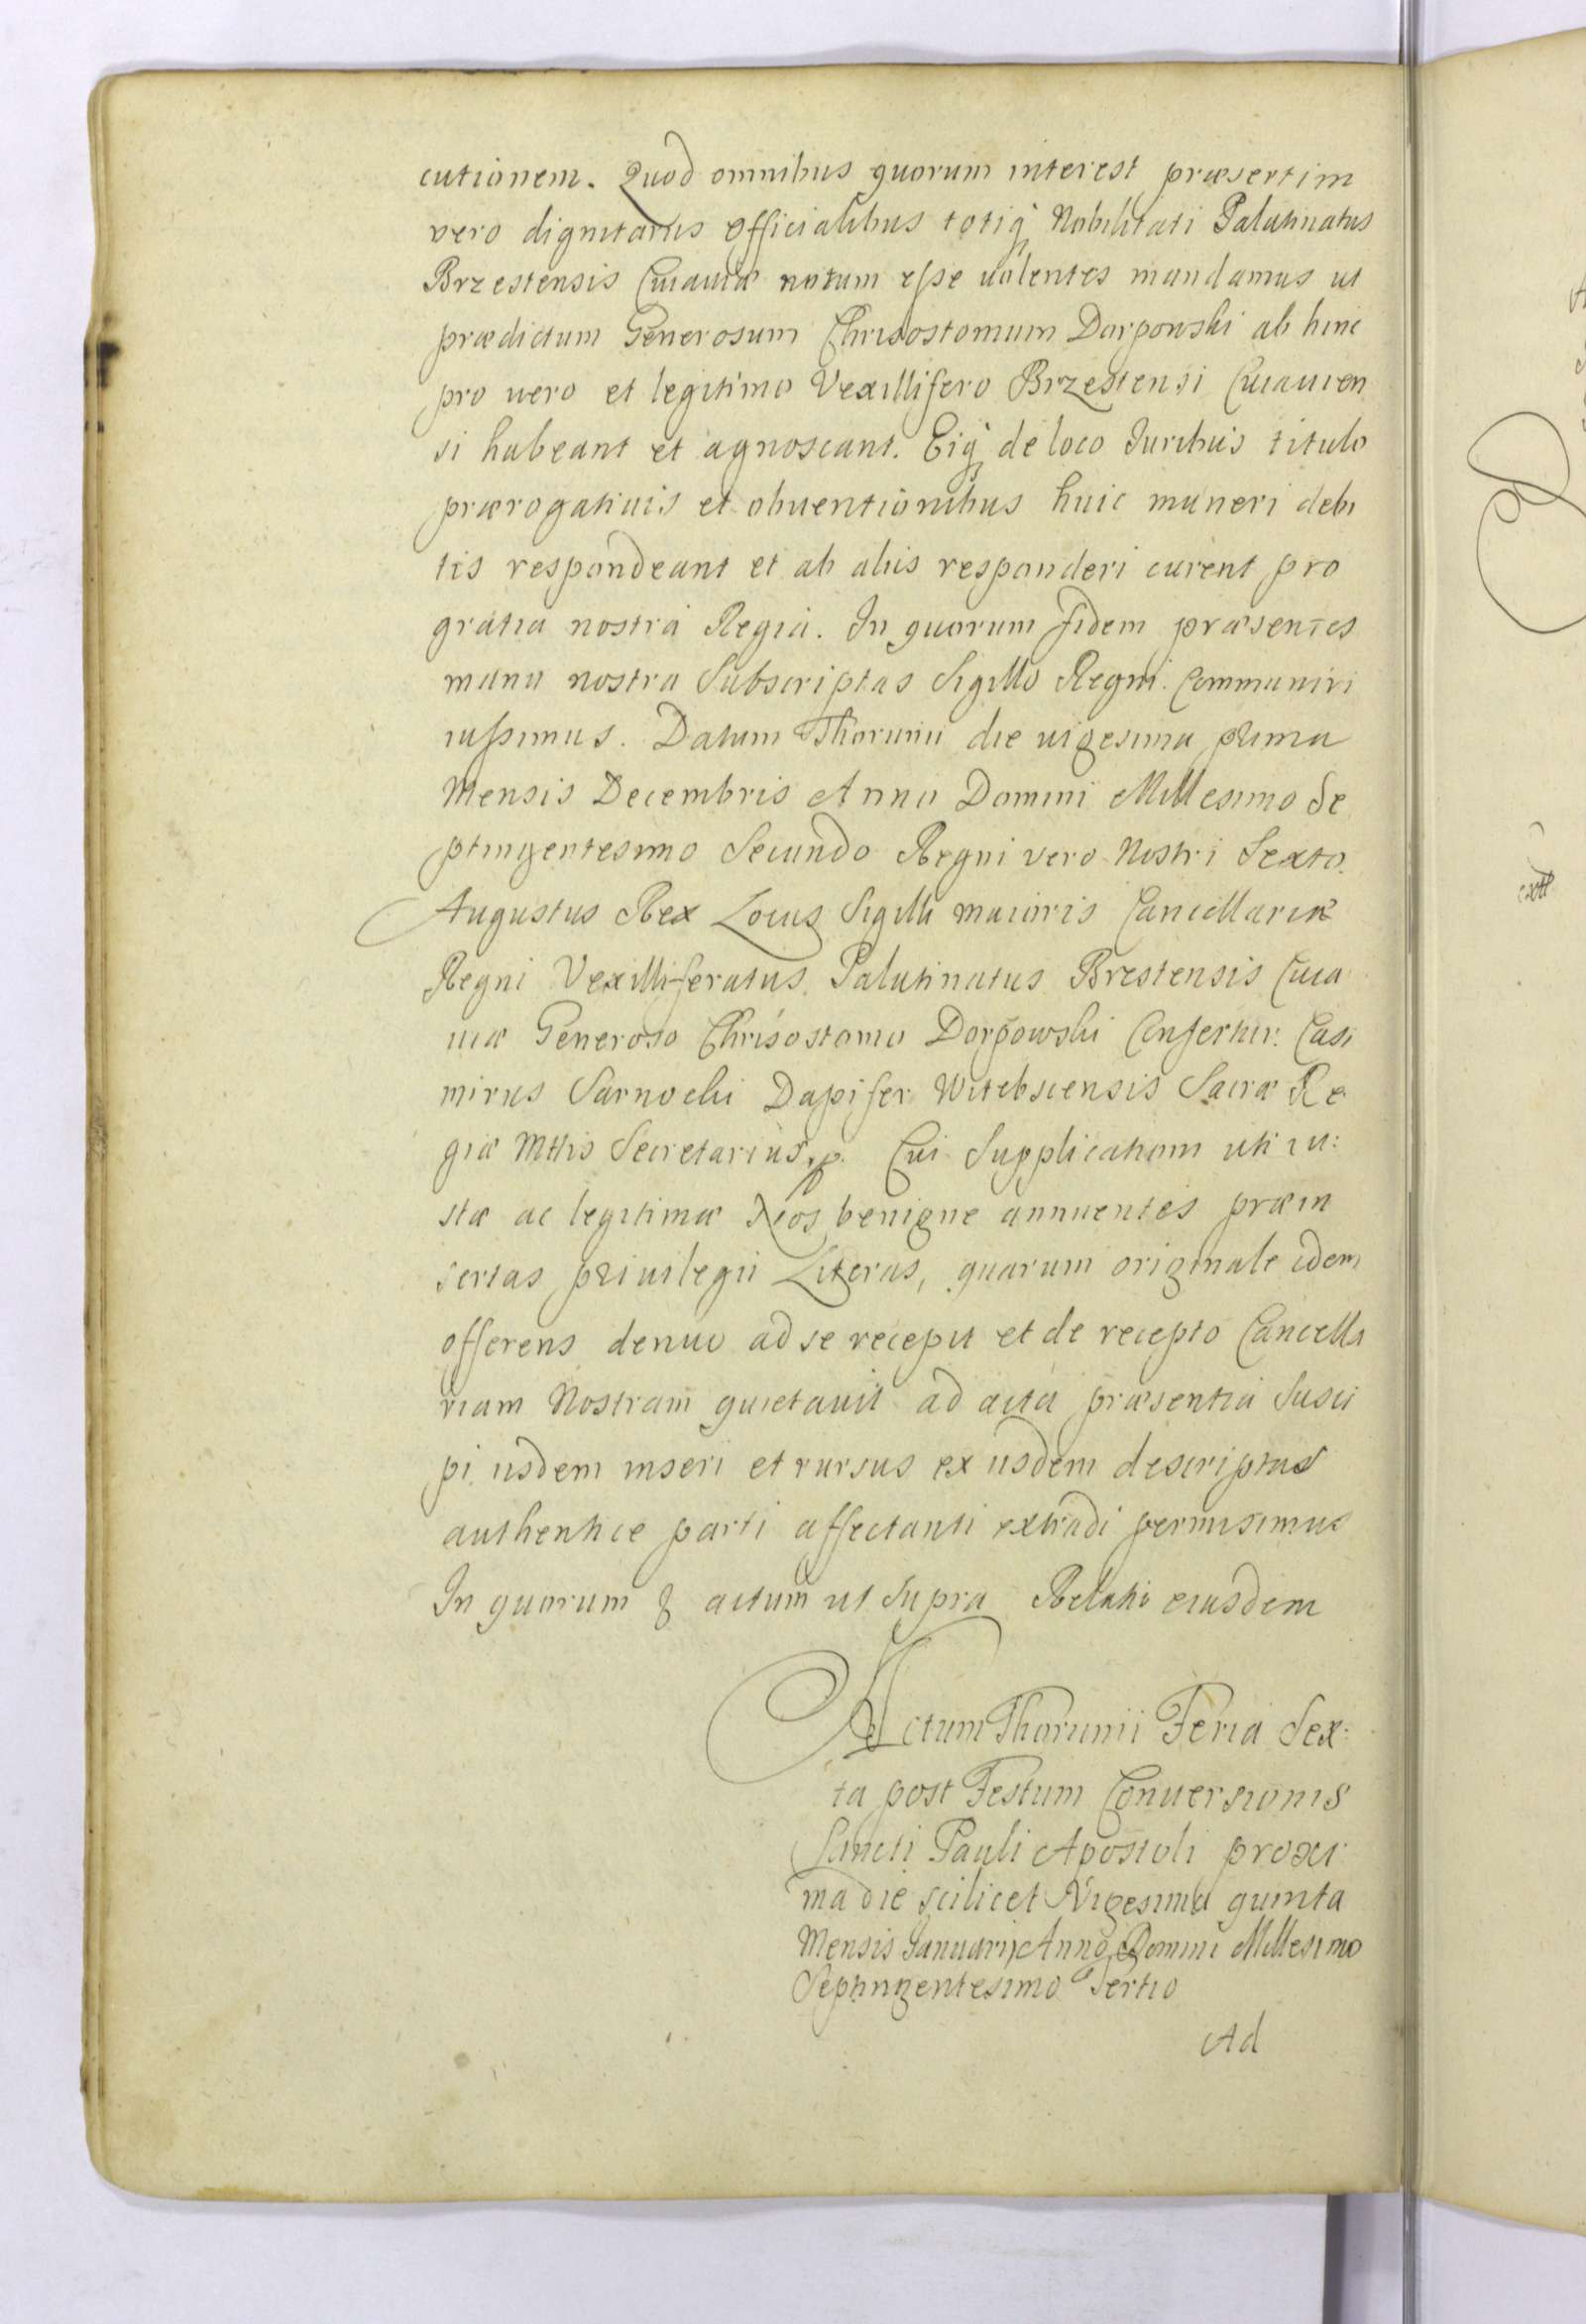 cutionem. Quod omnibus quorum interest præsertim
vero dignitariis Officialibus totiq̀ Nobilitati Palatinatus
Brzestensis Cuiauiæ notum esse uolentes mandamus ut
prædictum Generosum Chrisostomum Dorpowski ab hinc
pro uero et legitimo Vexillifero Brzestensi Cuiauien
si habeant et agnoscant. Eiq̀ de loco Iuribus titulo
prærogatiuis et obuentionibus huic muneri debi
tis respondeant et ab aliis responderi curent pro
gratia nostra Regia. In quorum fidem præsentes
manu nostra Subscriptas Sigillo Regni Communiri
iussimus. Datum Thorunii die uigesima prima
Mensis Decembris Anno Domini Millesimo Se
ptingentesimo Secundo Regni vero Nostri Sexto.
Augustus Rex Locus Sigilli maioris Cancellariæ
Regni Vexilliferatus Palatinatus Brestensis Cuia
uiæ Generoso Chrisostomo Dorpowski Confertur. Casi
mirus Sarnocki Dapifer Witebscensis Sacræ Re
giæ Mttis Secretarius, p. Cui Supplicationi uti iu:
stæ ac legitimæ Nos benigne annuentes præin
sertas priuilegii Literas, quarum originale idem
offerens denuo ad se recepit et de recepto Cancella
riam Nostram quietauit ad acta præsentia Susci
pi iisdem inseri et rursus ex iisdem descriptas
authentice parti affectanti extradi permisimus
In quorum & actum ut Supra Relatio eiusdem
Actum Thorunii Feria Sex:
ta post Festum Conuersionis
Sancti Pauli Apostoli proxi
ma die scilicet Vigesima quinta
Mensis Ianuarij Anno Domini Millesimo
Septingentesimo Tertio
Ad